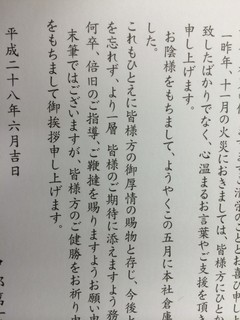 のこととお喜び申し
一昨年、十一月の火災におきましては、皆様方にひと
致したばかりでなく、心温まるお言葉やご支援を頂
申し上げます。
お陰様をもちまして、ようやくこの五月に本社倉庫
した。
これもひとえに皆様方の御厚情の賜物と存じ、今後と
を忘れず、より一層 皆様のご期待に添えますよう務
何卒、倍旧のご指導、ご鞭撻を賜りますようお願い申
末筆ではございますが、皆様方のご健勝をお祈り申
をもちまして御挨拶申し上げます。
平成二十八年六月吉日